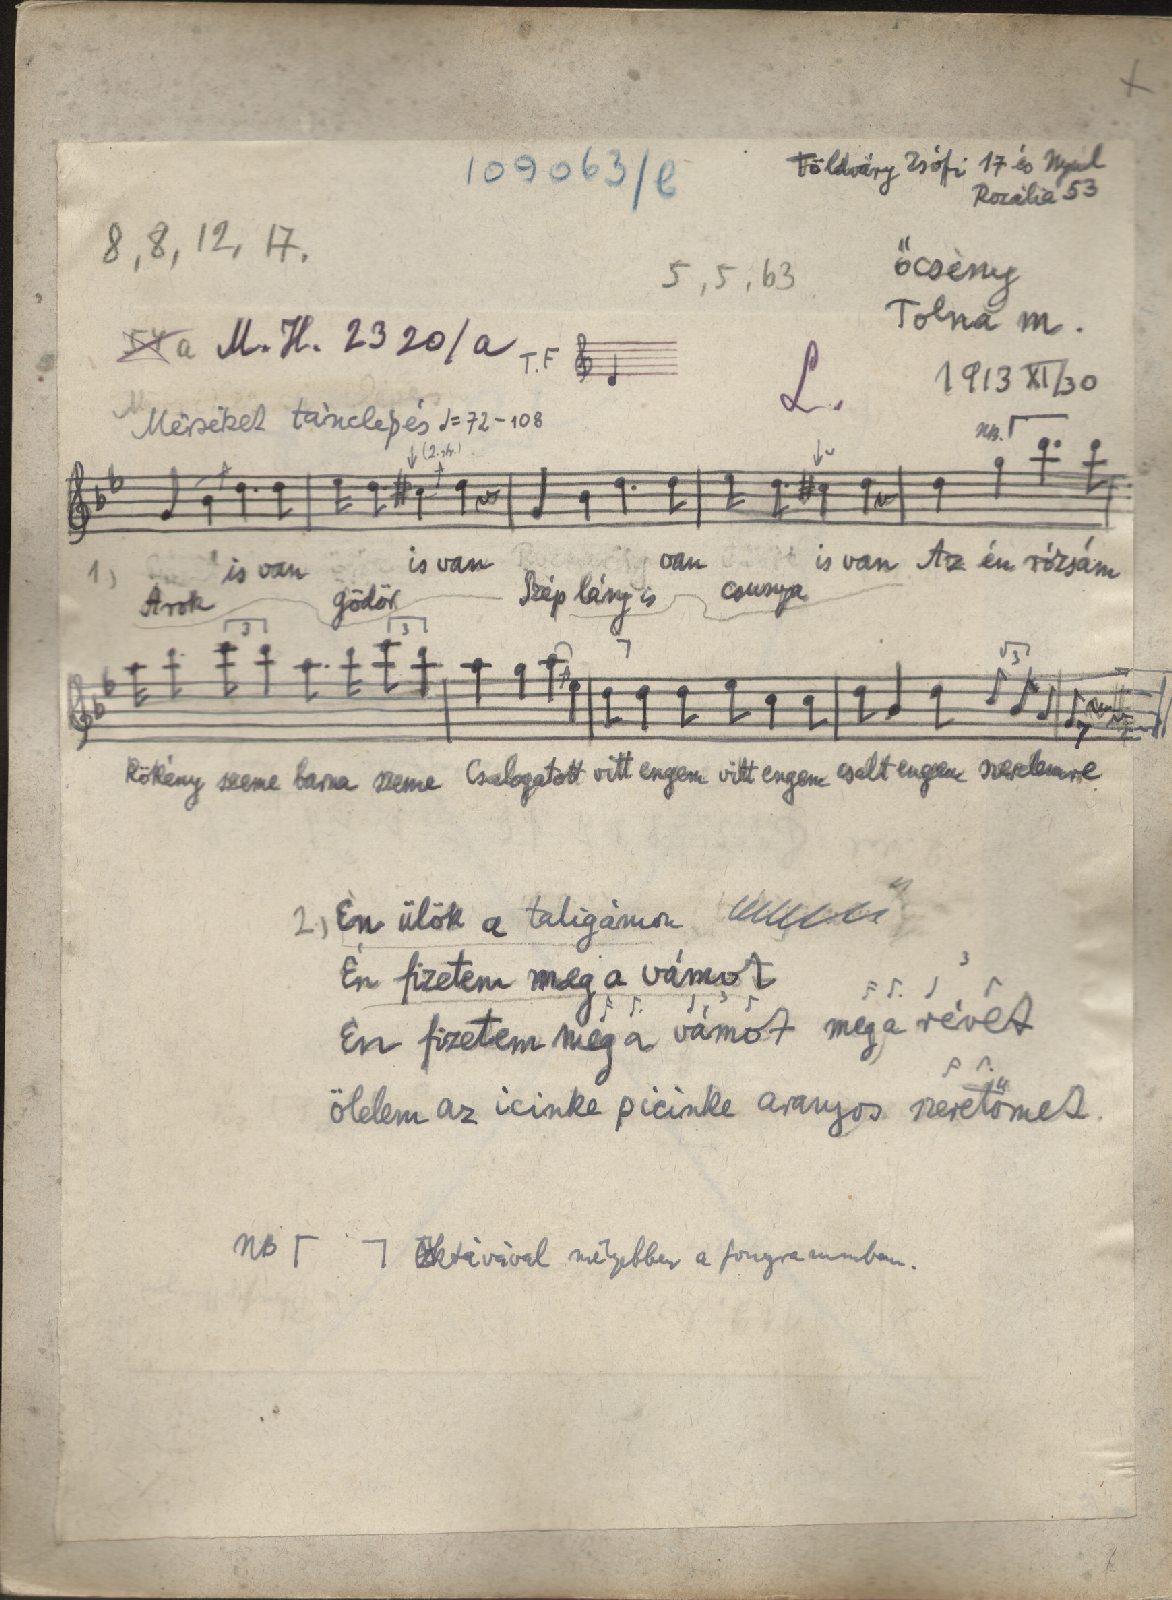 109063/e
Földváry Zsófi 17 és Nyúl
Rozália 53
8, 8, 12, 17.
5, 5, b3
Őcsény
Tolna m.
a M.H. 2320/a T.F
L.
1913 XI/30
Mérsékelt tánclépés ♩=72-108
(2.vsz.)
NB.
1) is van is van van is van Az én rózsám
Árok gödör Szép lány is csunya
3 3 3
Kökény szeme barna szeme Csalogatott vitt engem vitt engem csalt engem szerelemre
2) Én ülök a taligámon
Én fizetem meg a vámot
3
3
Én fizetem meg a vámot meg a révet
ölelem az icinke picinke aranyos szeretőmet.
NB ┌ ┐ Oktávával mélyebben a fonogrammban.